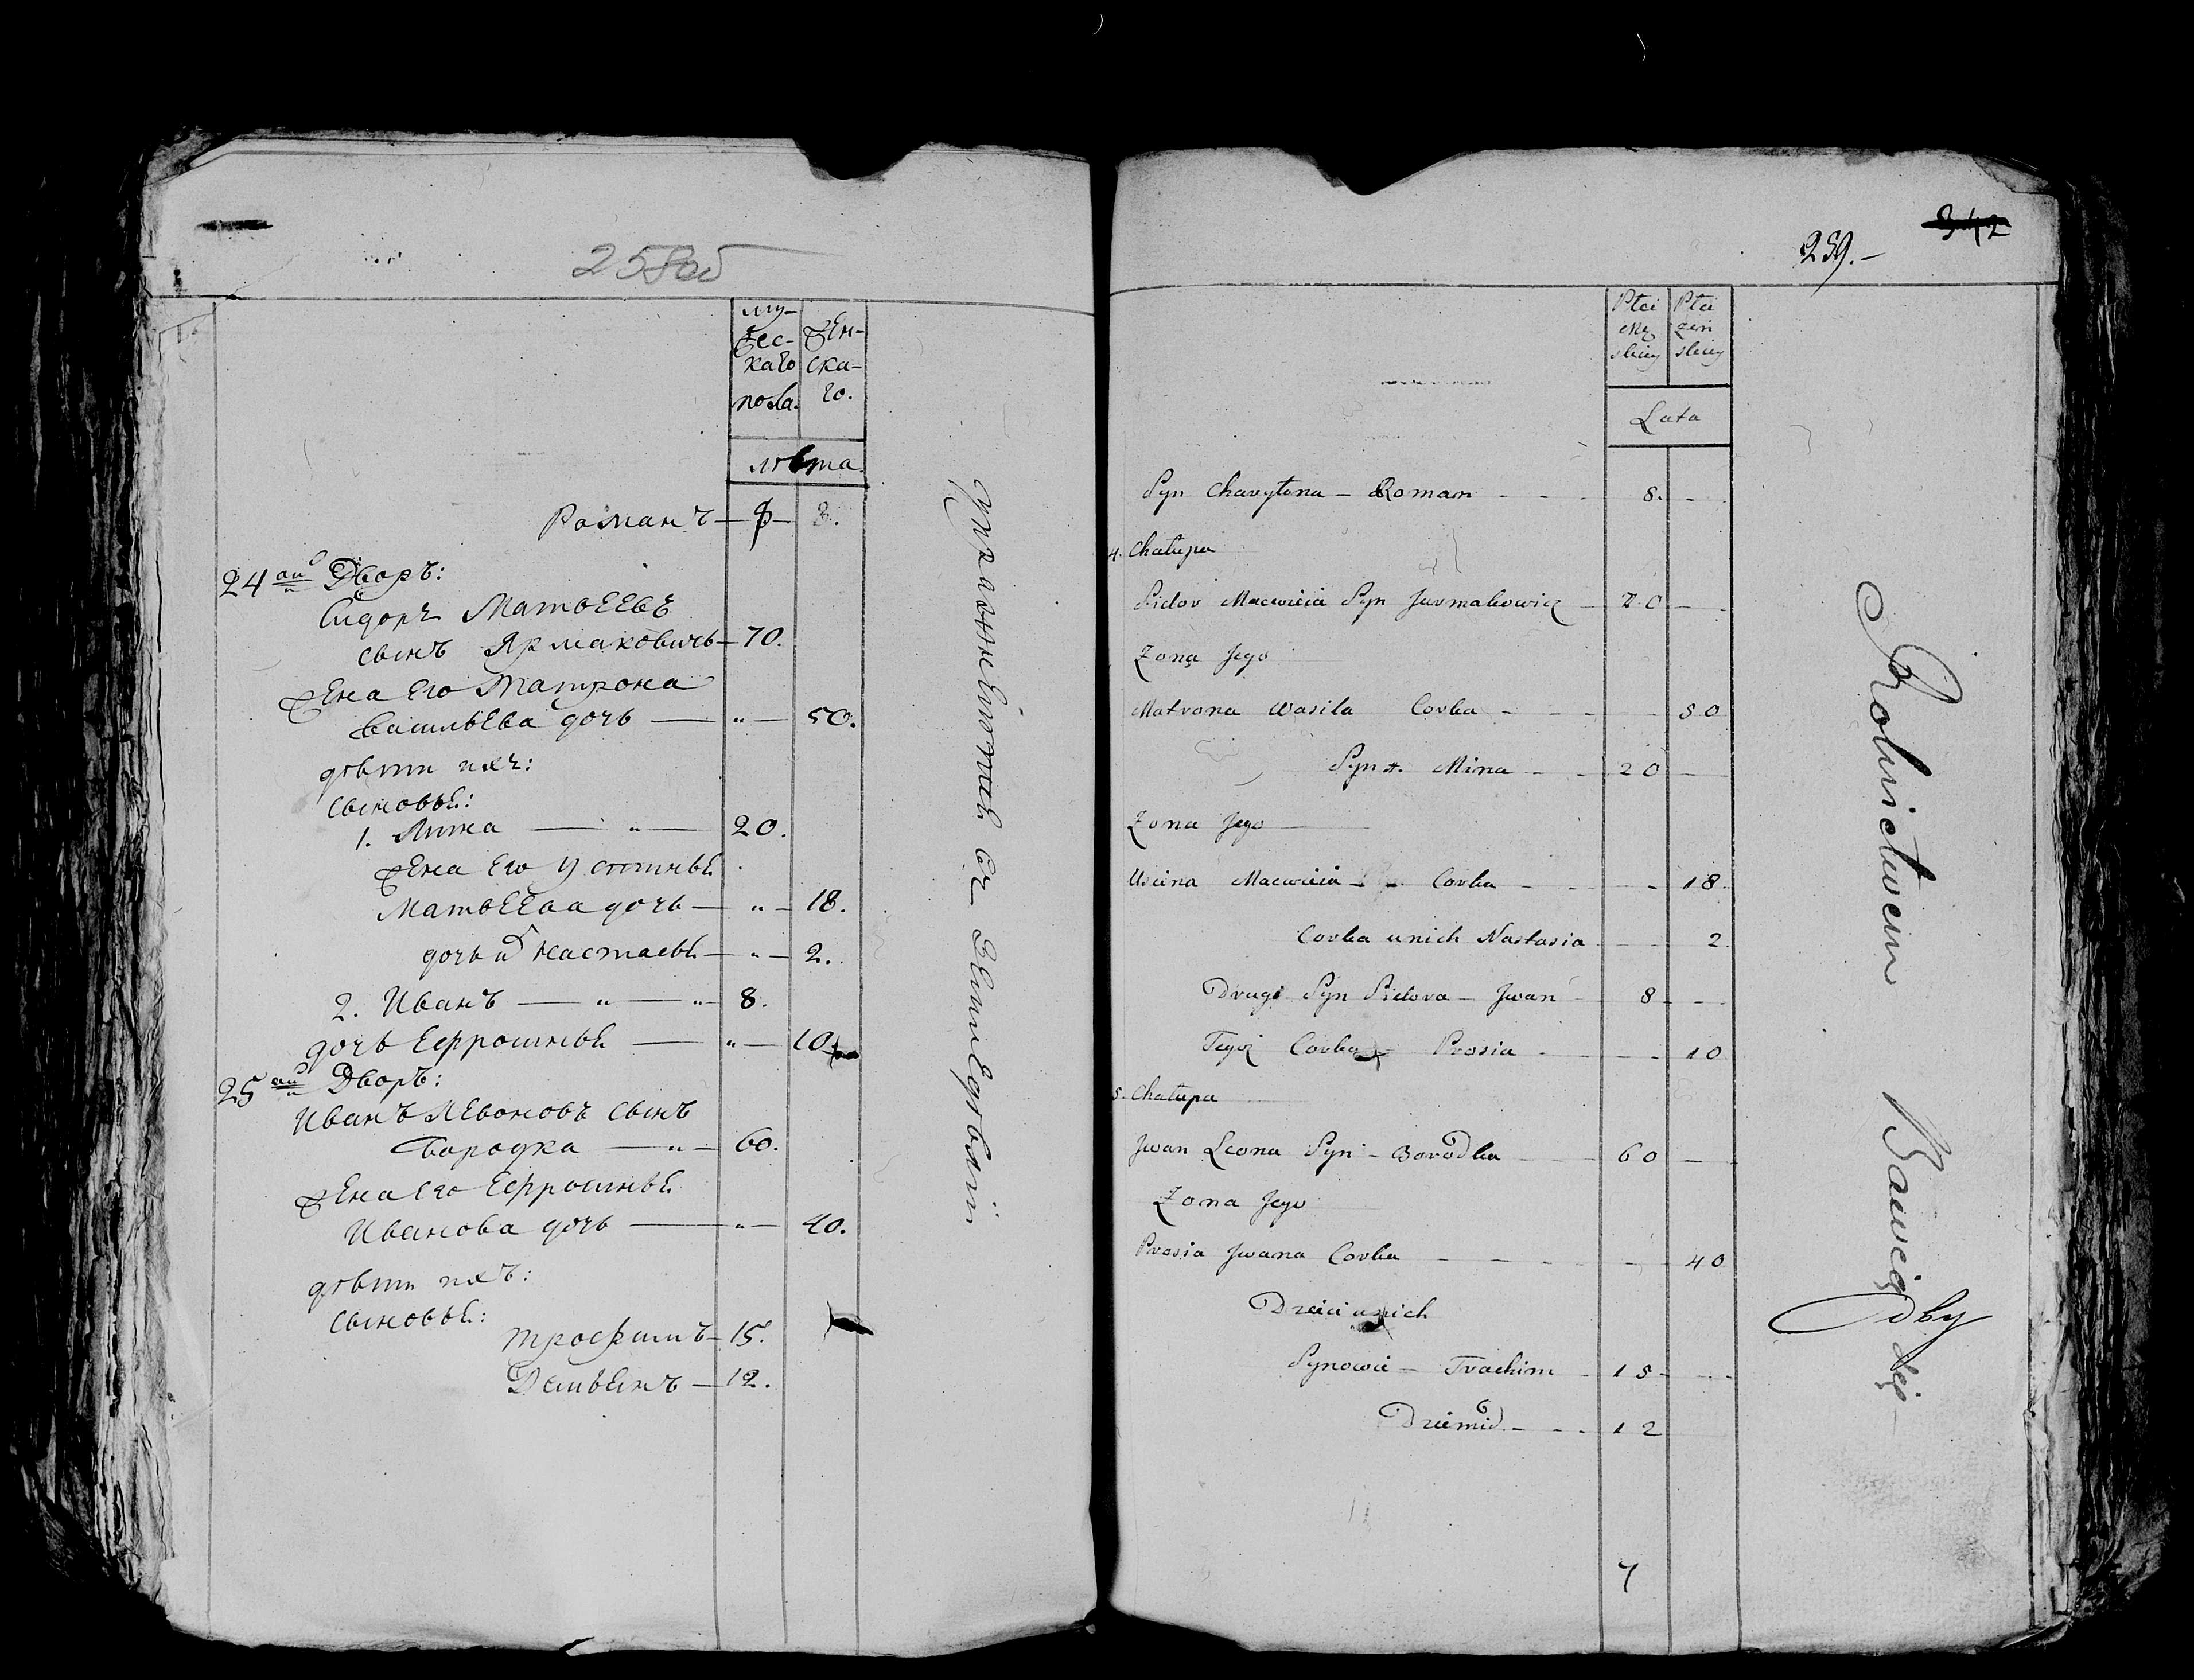 258об
му-
жес-
каго
пола.
жен-
ска-
го.
лѣта.
Романъ — 8 —
24 ой Дворъ:
Сидоръ Матвеевъ
сынъ Ярмаковичь — 70.
жена его Матрона
васильева дочь — „ — 50.
дѣти ихъ:
сыновье:
1. Мина — „ — 20.
жена его Устинье
Матвеева дочь — „ — 18.
дочь Настасье — „ — 2.
2. Иванъ — „ — „ 8.
дочь Ефросинье — „ — 10.
25 ой Дворъ:
Иванъ Левоновъ сынъ
бородка — „ — 60.
жена его Ефросинье
Иванова дочь — „ — 40.
дѣти ихъ:
сыновье:
трофимъ — 15.
Демьянъ — 12.
упражнение въ земледѣлии
342
259. —
Płci
mę
skiey
Płci
żeń
skiey
Lata
Syn Charytona — Roman - - 8. -
4. Chałupa
Sidor Macwieia Syn Jarmakowicz — 70 —
Zona Jego
Matrona Wasila Corka - - - - 50
Syn Mina - - 20 —
Zona Jego
Uscina Macwieia — Corka - - - - 18
Corka unich Nastasia - - 2
Drugi Syn Sidora — Jwan 8 - -
Tegoż Corka Prosia - - - 10
5. Chałupa
Jwan Leona Syn — Borodka — 60 —
Zona Jego
Prosia Jwana Corka - - - - 40
Dzieci unich
Synowie — Trachim - 15 - -
Dziemid - - - 12
7
Rolnictwem Bawią
Się